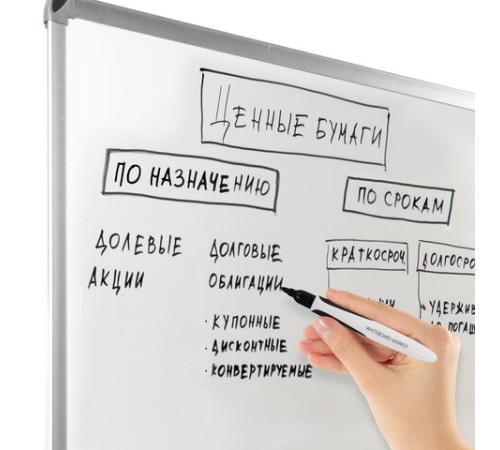 ЦЕННЫЕ БУМАГИ
ПО НАЗНАЧЕНИЮ
ПО СРОКАМ
ДОЛЕВЫЕ
АКЦИИ
ДОЛГОВЫЕ
ОБЛИГАЦИИ
· КУПОННЫЕ
· ДИСКОНТНЫЕ
· КОНВЕРТИРУЕМЫЕ
КРАТКОСРОЧ
ДОЛГОСРО
УДЕРЖИВ
WHITEBOARD MARKER